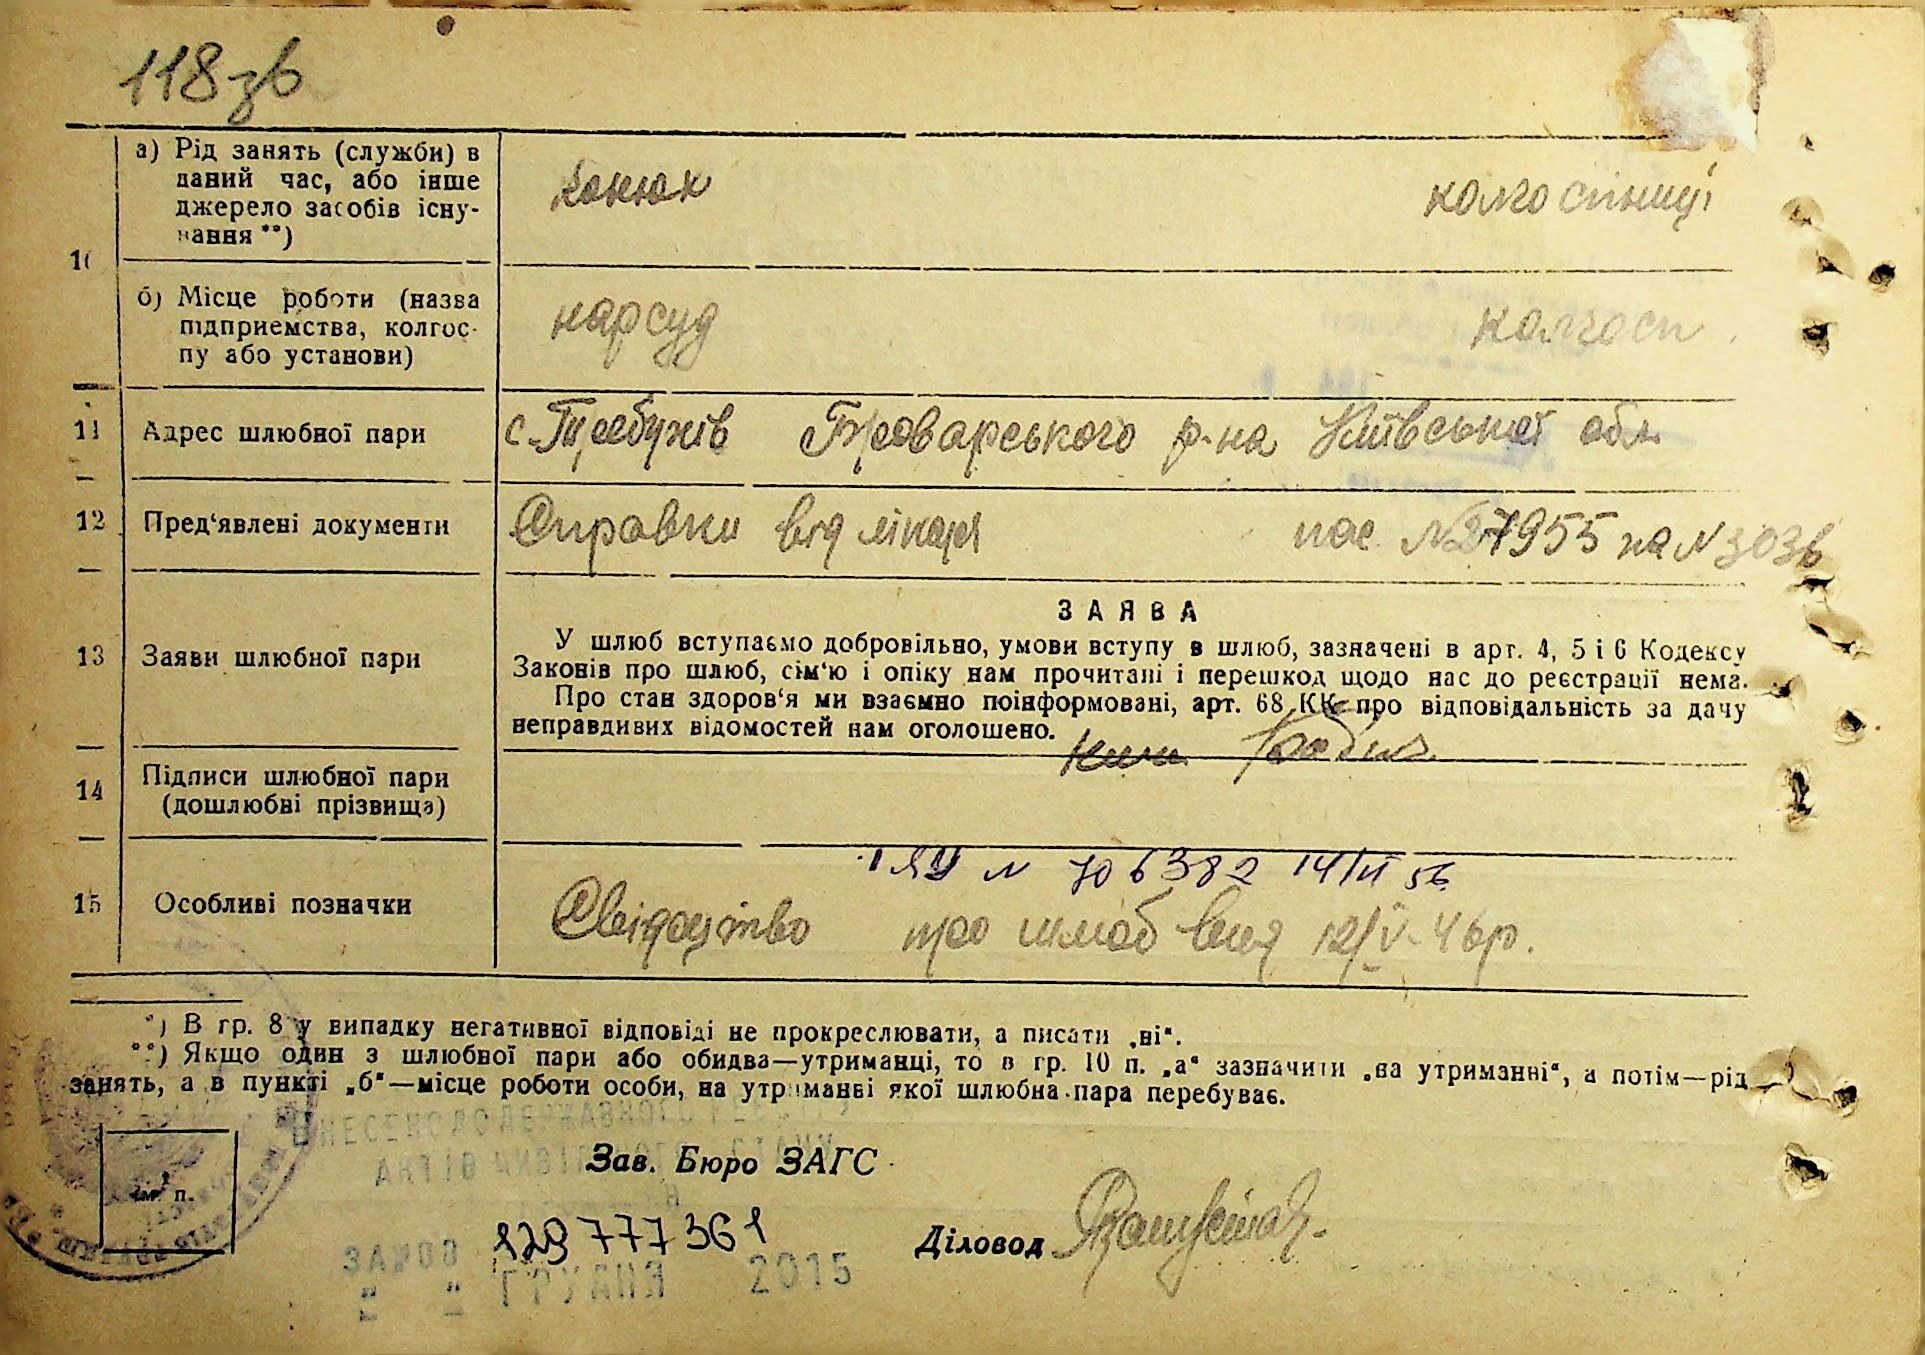 118 зв
а) Рід занять (служби) в
даний час, або інше
джерело засобів існу-
вання **)
конюх
колгоспниці
10
б) Місце роботи (назва
підприємства, колгос-
пу або установи)
нарсуд
колгосп
11 Адрес шлюбної пари
с. Требухів Броварського р-на Київської обл.
12 Пред‘явлені документи
Справки від лікаря пас. №27955 на №303в
13 Заяви шлюбної пари
ЗАЯВА
У шлюб вступаємо добровільно, умови вступу в шлюб, зазначені в арт. 4, 5 і 6 Кодексу
Законів про шлюб, сім‘ю і опіку нам прочитані і перешкод щодо нас до реєстрації нема.
Про стан здоров‘я ми взаємно поінформовані, арт. 68 КК про відповідальність за дачу
неправдивих відомостей нам оголошено.
14 Підписи шлюбної пари
(дошлюбні прізвища)
15 Особливі позначки
ЯУ № 706382 14/VI 56
Свідоцтво про шлюб 12/V-46р.
*) В гр. 8 у випадку негативної відповіді не прокреслювати, а писати „ні“.
**) Якщо один з шлюбної пари або обидва—утриманці, то в гр. 10 п. „а“ зазначити „на утриманні“, а потім—рід
занять, а в пункті „б“—місце роботи особи, на утриманні якої шлюбна пара перебуває.
ВНЕСЕНО ДО ДЕРЖАВНОГО РЕЄСТРУ
АКТІВ ЦИВІЛЬНОГО СТАНУ
Зав. Бюро ЗАГС
м. п.
129777361
Діловод
ГРУДНЯ 2015